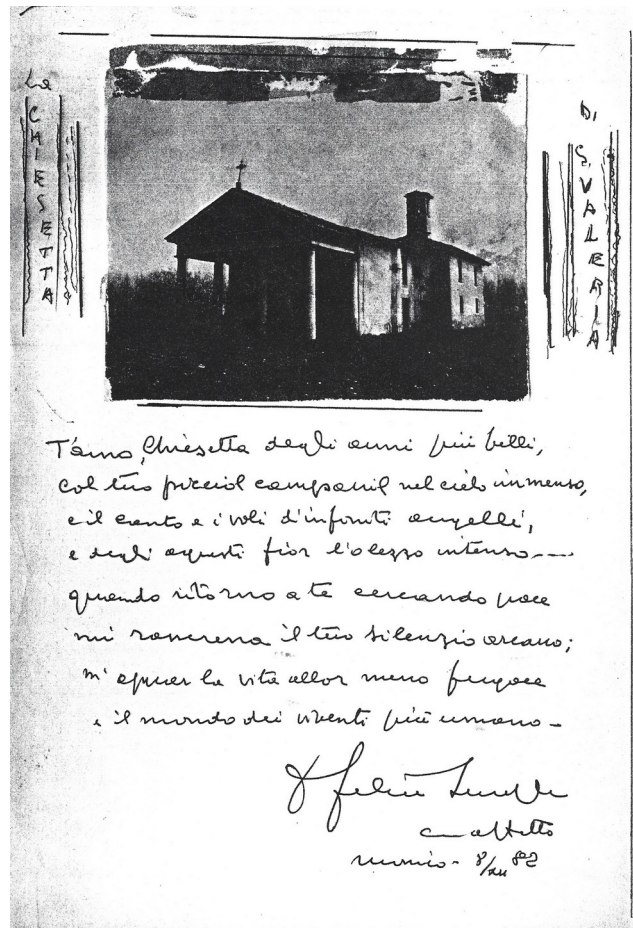 La
CHIESETTA
DI
S. VALERIA
T'amo, Chiesetta degli anni più belli,
col tuo picciol campanil nel cielo immenso,
e il canto e i voli d'infiniti augelli,
e degli agresti fior l'olezzo intenso....
quando ritorno a te cercando pace
mi rasserena il tuo silenzio arcano;
m'appar la vita allor meno fugace
e il mondo dei viventi più umano -
felice
con affetto
8/XII 82